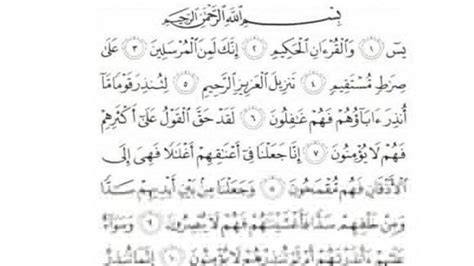 بِسْمِ اللَّهِ الرَّحْمَٰنِ الرَّحِيمِ
يسٓ ١ وَالْقُرْءَانِ الْحَكِيمِ ٢ إِنَّكَ لَمِنَ الْمُرْسَلِينَ ٣ عَلَىٰ
صِرَٰطٍ مُّسْتَقِيمٍ ٤ تَنزِيلَ الْعَزِيزِ الرَّحِيمِ ٥ لِتُنذِرَ قَوْمًا مَّا
أُنذِرَ ءَابَآؤُهُمْ فَهُمْ غَٰفِلُونَ ٦ لَقَدْ حَقَّ الْقَوْلُ عَلَىٰٓ أَكْثَرِهِمْ
فَهُمْ لَا يُؤْمِنُونَ ٧ إِنَّا جَعَلْنَا فِىٓ أَعْنَٰقِهِمْ أَغْلَٰلًا فَهِىَ إِلَى
الْأَذْقَانِ فَهُم مُّقْمَحُونَ ٨ وَجَعَلْنَا مِنۢ بَيْنِ أَيْدِيهِمْ سَدًّا
وَمِنْ خَلْفِهِمْ سَدًّا فَأَغْشَيْنَٰهُمْ فَهُمْ لَا يُبْصِرُونَ ٩ وَسَوَآءٌ